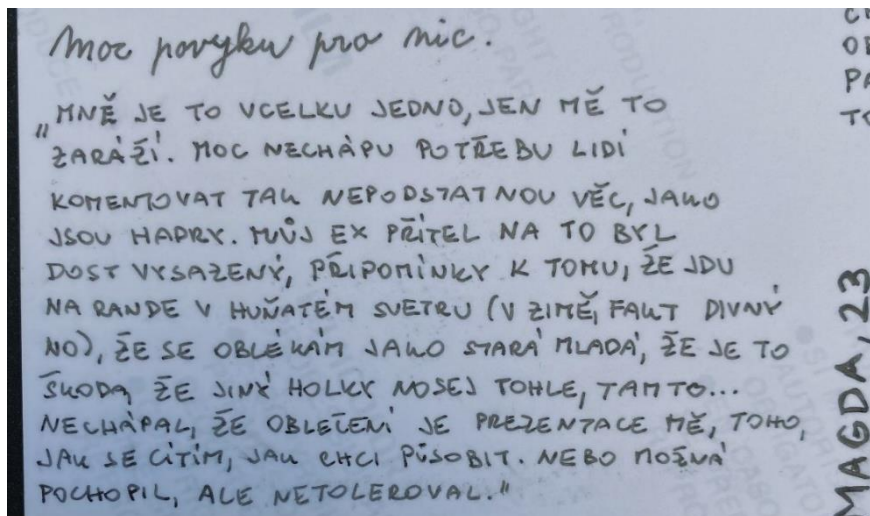 Moc povyku pro nic.
„MNĚ JE TO VCELKU JEDNO, JEN MĚ TO
ZARÁŽÍ. MOC NECHÁPU POTŘEBU LIDÍ
KOMENTOVAT TAK NEPODSTATNOU VĚC, JAKO
JSOU HADRY. MŮJ EX PŘÍTEL NA TO BYL
DOST VYSAZENÝ, PŘIPOMÍNKY K TOMU, ŽE JDU
NA RANDE V HUŇATÉM SVETRU (V ZIMĚ, FAKT DIVNÝ
NO), ŽE SE OBLÉKÁM JAKO STARÁ MLADÁ, ŽE JE TO
ŠKODA, ŽE JINÝ HOLKY NOSEJ TOHLE, TAMTO...
NECHÁPAL, ŽE OBLEČENÍ JE PREZENTACE MĚ, TOHO,
JAK SE CÍTÍM, JAK CHCI PŮSOBIT. NEBO MOŽNÁ
POCHOPIL, ALE NETOLEROVAL."
MAGDA, 23